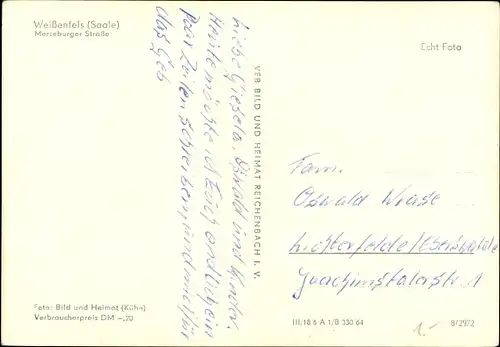 Weißenfels (Saale)
Merseburger Straße
Echt Foto
Liebe Gisela, Oswald und Kinder.
Heute möchte ich Euch endlich ein
Paar Zeilen schreiben, und mich für
das Geb
VEB BILD UND HEIMAT REICHENBACH I. V.
Fam.
Oswald
Lichterfelde/Eberswalde
Joachimstalerstr. 1
Foto: Bild und Heimat (Kühn)
Verbraucherpreis DM –,20
III/18 6 A 1/B 330 64
1.-
8/2972